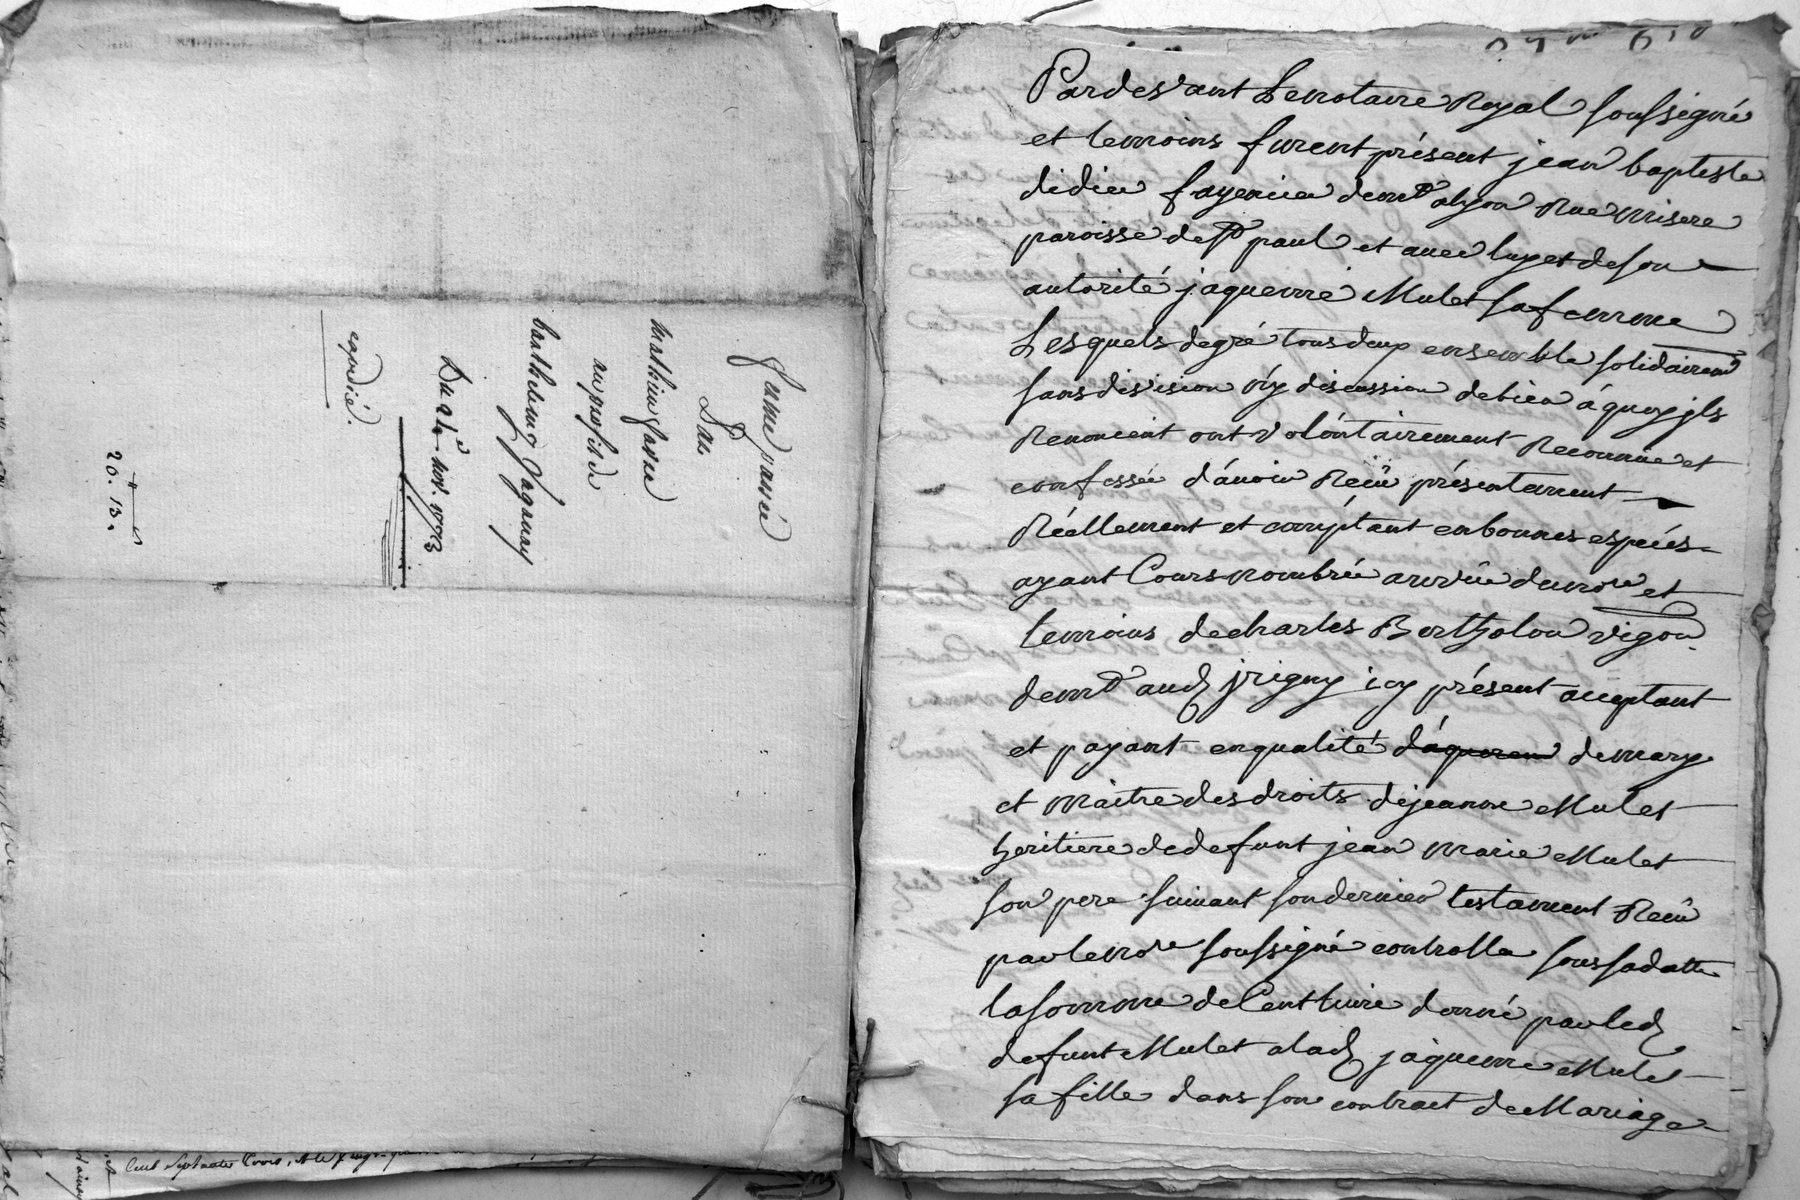 ferme passée
Par
mathieu fayeu
au profit de
barthelemy Jaganay
Du 21e nov. 1773
expedié.
20. 13.
Pardevant Lenotaire Royal soussigné
et temoins furent présent jean baptiste
didier fayencier demt alyon Rue misere
paroisse de st paul et avec luy et deson
autorité jaquemе Mulet sa femme
Lesquels degré tous deux ensemble solidairemt
sans division ny discussion debien áquoy jls
Renoncent ont volóntairement Reconnue et
confessée d'ávoir Reçû présentement
Réellement et comptant enbonnes espéces
ayant Cours nombrée amvûe dunore et
temoins de charles Bertholon vigon
demt aud jrigny icy présent acceptant
et payant enqualité d'áquereur demary
et maitre des droits dejeanne Mulet
heritiere dedefunt jean marie Mulet
son pere suivant sondernier testament Reçû
par lenore soussigné controlle sous sadatte
la somme de Cent livre donné par led
defunt Mulet alad jaqueme Mulet
sa fille dans son contract de Mariage